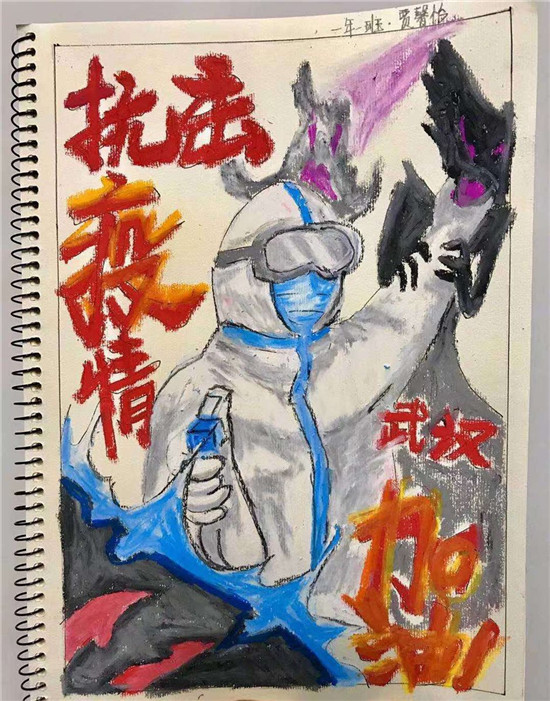 一年一班·贾馨怡
抗击
疫
情
武汉
加
油!